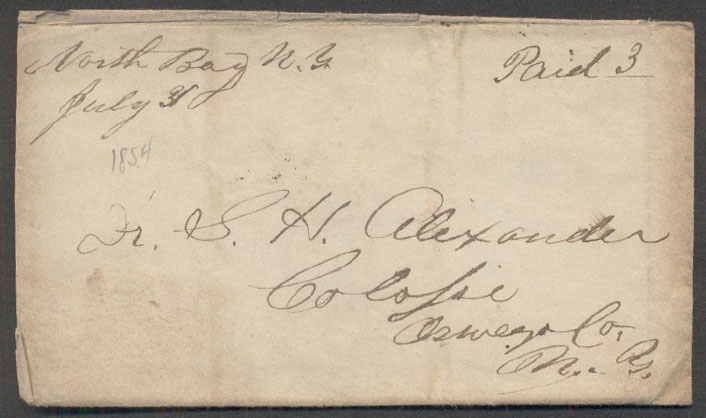 North Bay N.Y.
Paid 3
July 31
1854
Dr. S. H. Alexander
Colosse
Oswego Co,
N. Y.